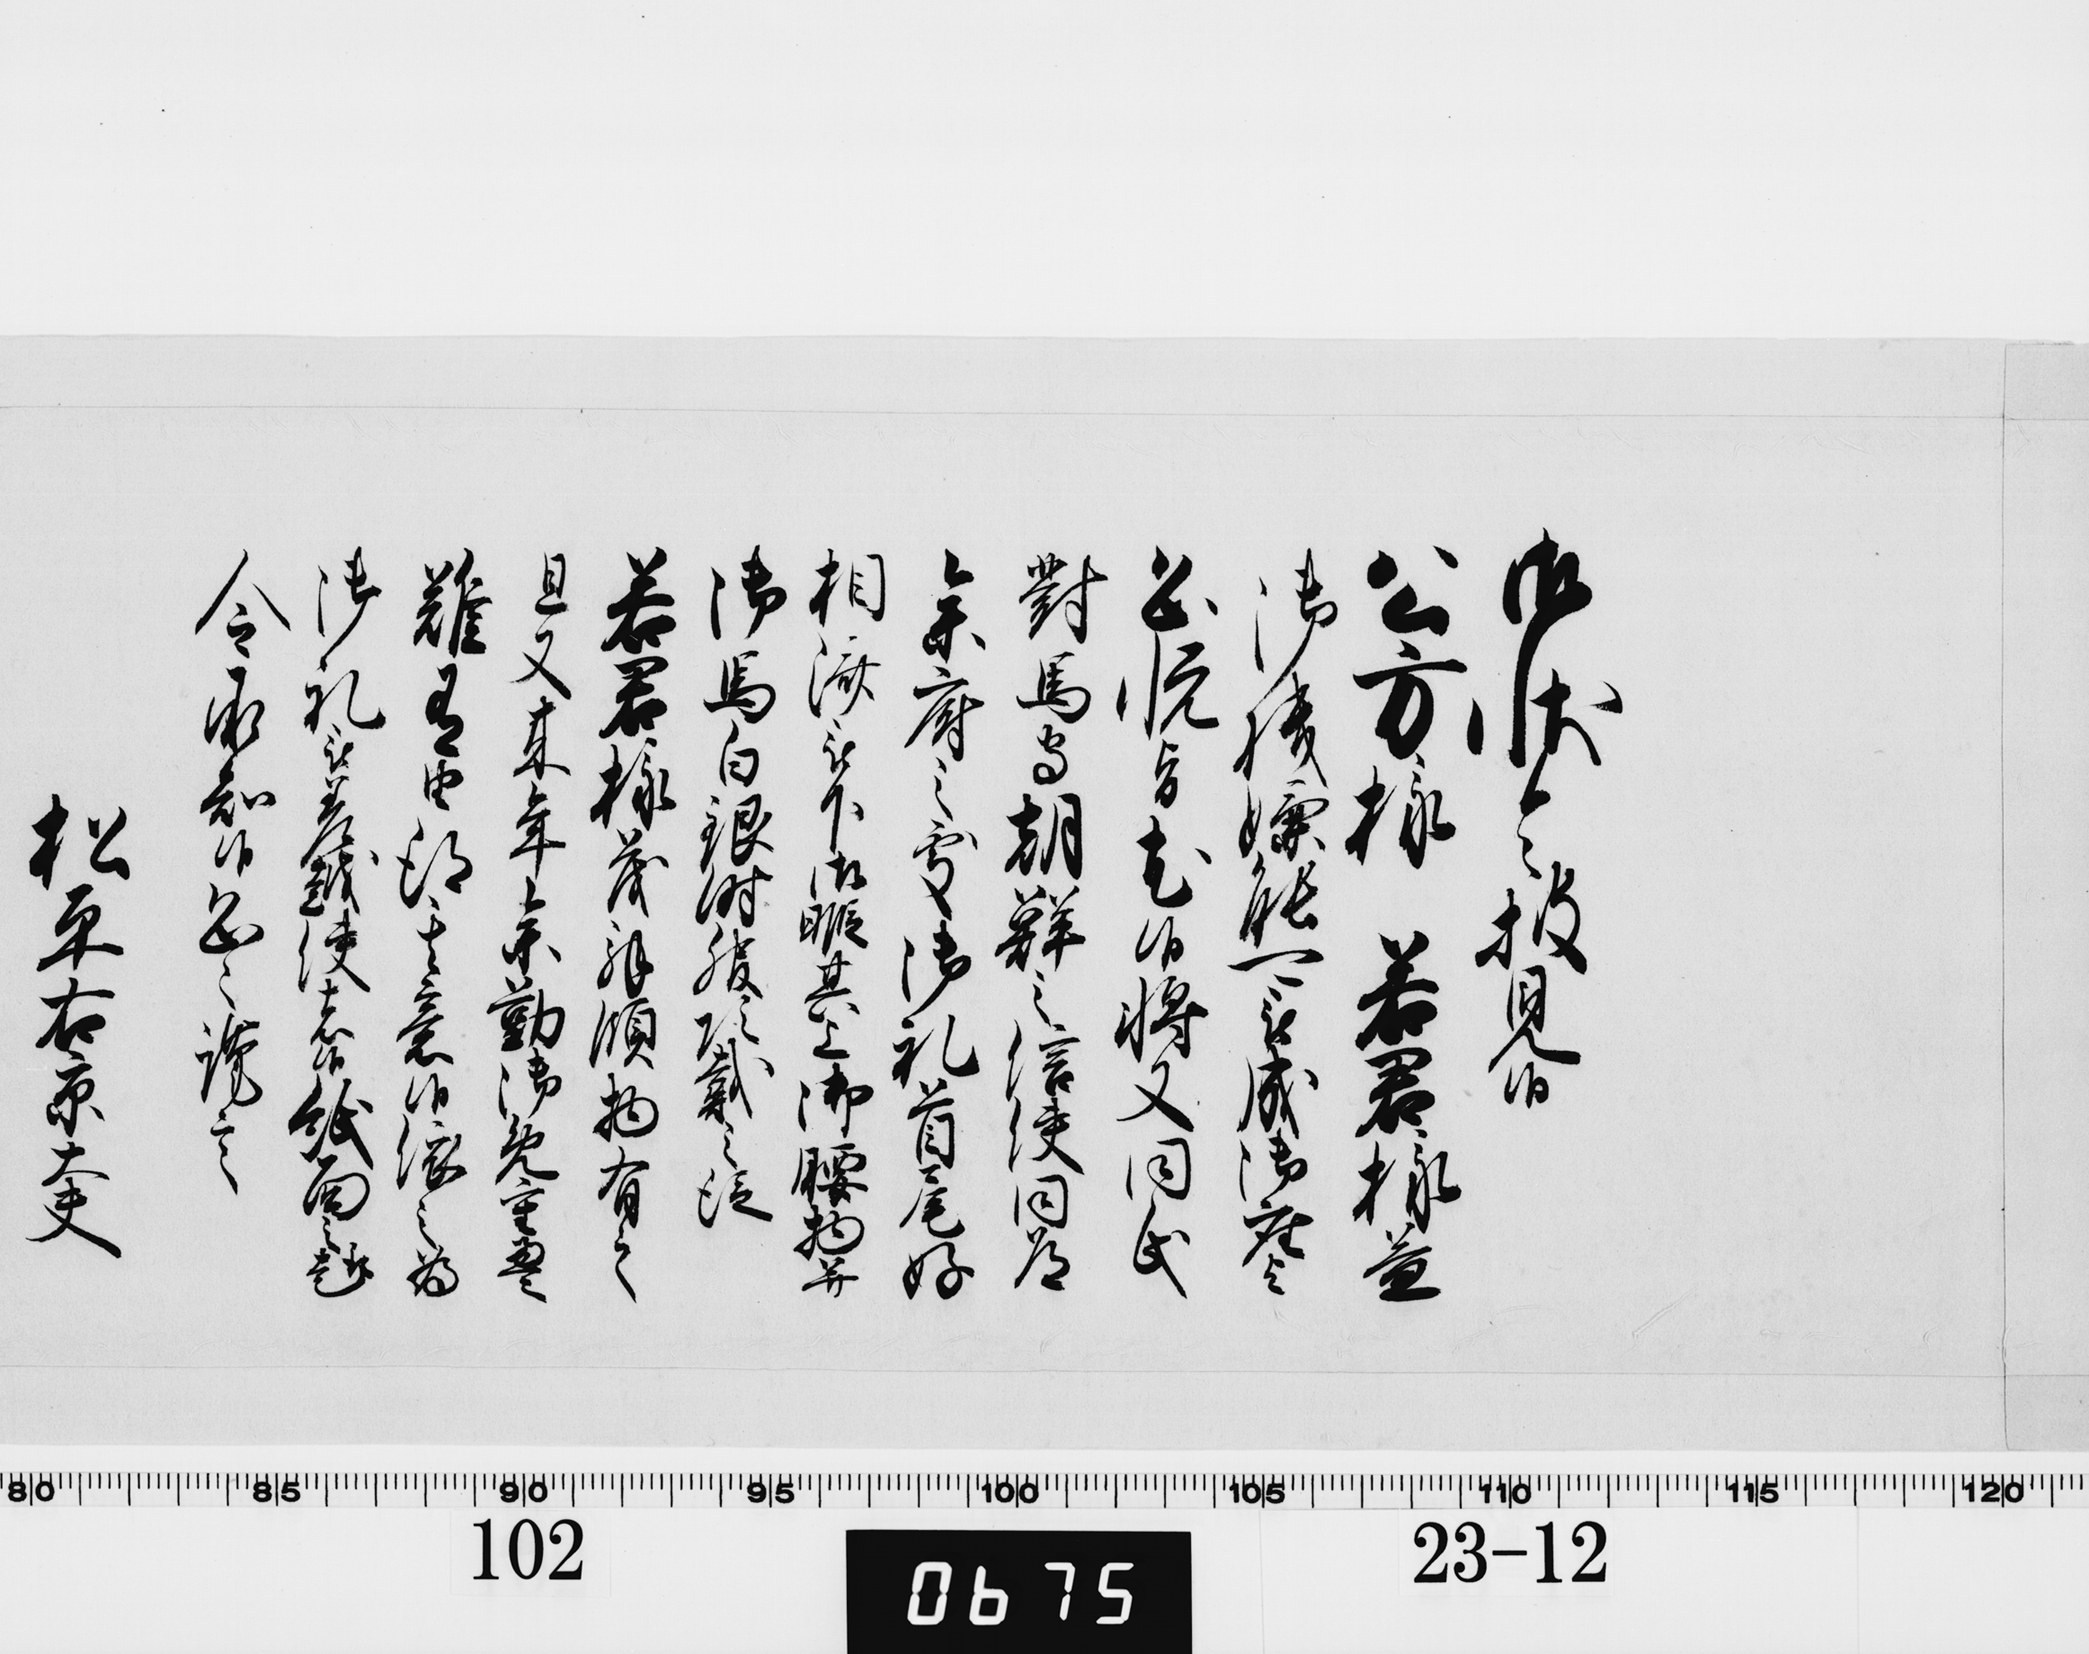 御状令披見候
公方様 若君様益
御機嫌能被成御座
恐悦旨尤候将又同氏
對馬守朝鮮之信使同道
参府之處御礼首尾好
相濟被下御暇其上御腰物并
御馬白銀時服頂戴之従
若君様茂拜領物有之
且又来年参勤御免重畳
難有由得其意候依之為
御礼被差越使者候紙面之趣
令承知候恐々謹言
松平右京大夫
80 85 90 95 100 105 110 115 120
102
0675
23-12